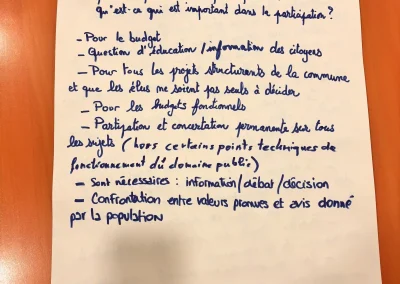 qu'est-ce qui est important dans la participation?
- Pour le budget
- Question d'éducation/information des citoyens
- Pour tous les projets structurants de la commune
et que les élus ne soient pas seuls à décider
- Pour les budgets fonctionnels
- Partipation et concertation permanente sur tous
les sujets (hors certains points techniques de
fonctionnement du domaine public)
- Sont nécessaires : information/débat/décision
- Confrontation entre valeurs promues et avis donné
par la population